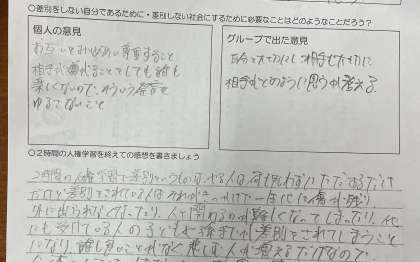 ○差別をしない自分であるために・差別しない社会にするために必要なことはどのようなことだろう？
個人の意見
お互いをみとめあい尊重すること
相手が嫌がることをしても誰も
楽しくないので、そういう発言を
ゆるさないこと
グループで出た意見
自分を大切にし 相手も大切に
相手がどのように思うか考える
○２時間の人権学習を終えての感想を書きましょう
２時間の人権学習で差別というものは
だけど差別をされている人は 一生 傷が残り
外に出られなくなったり、人と関わるのが難しくなってしまったり、
にも受けている人の子どもや孫まで 差別をされてしまうこと
になり、誰も 悲しむ人が増えるだけなので